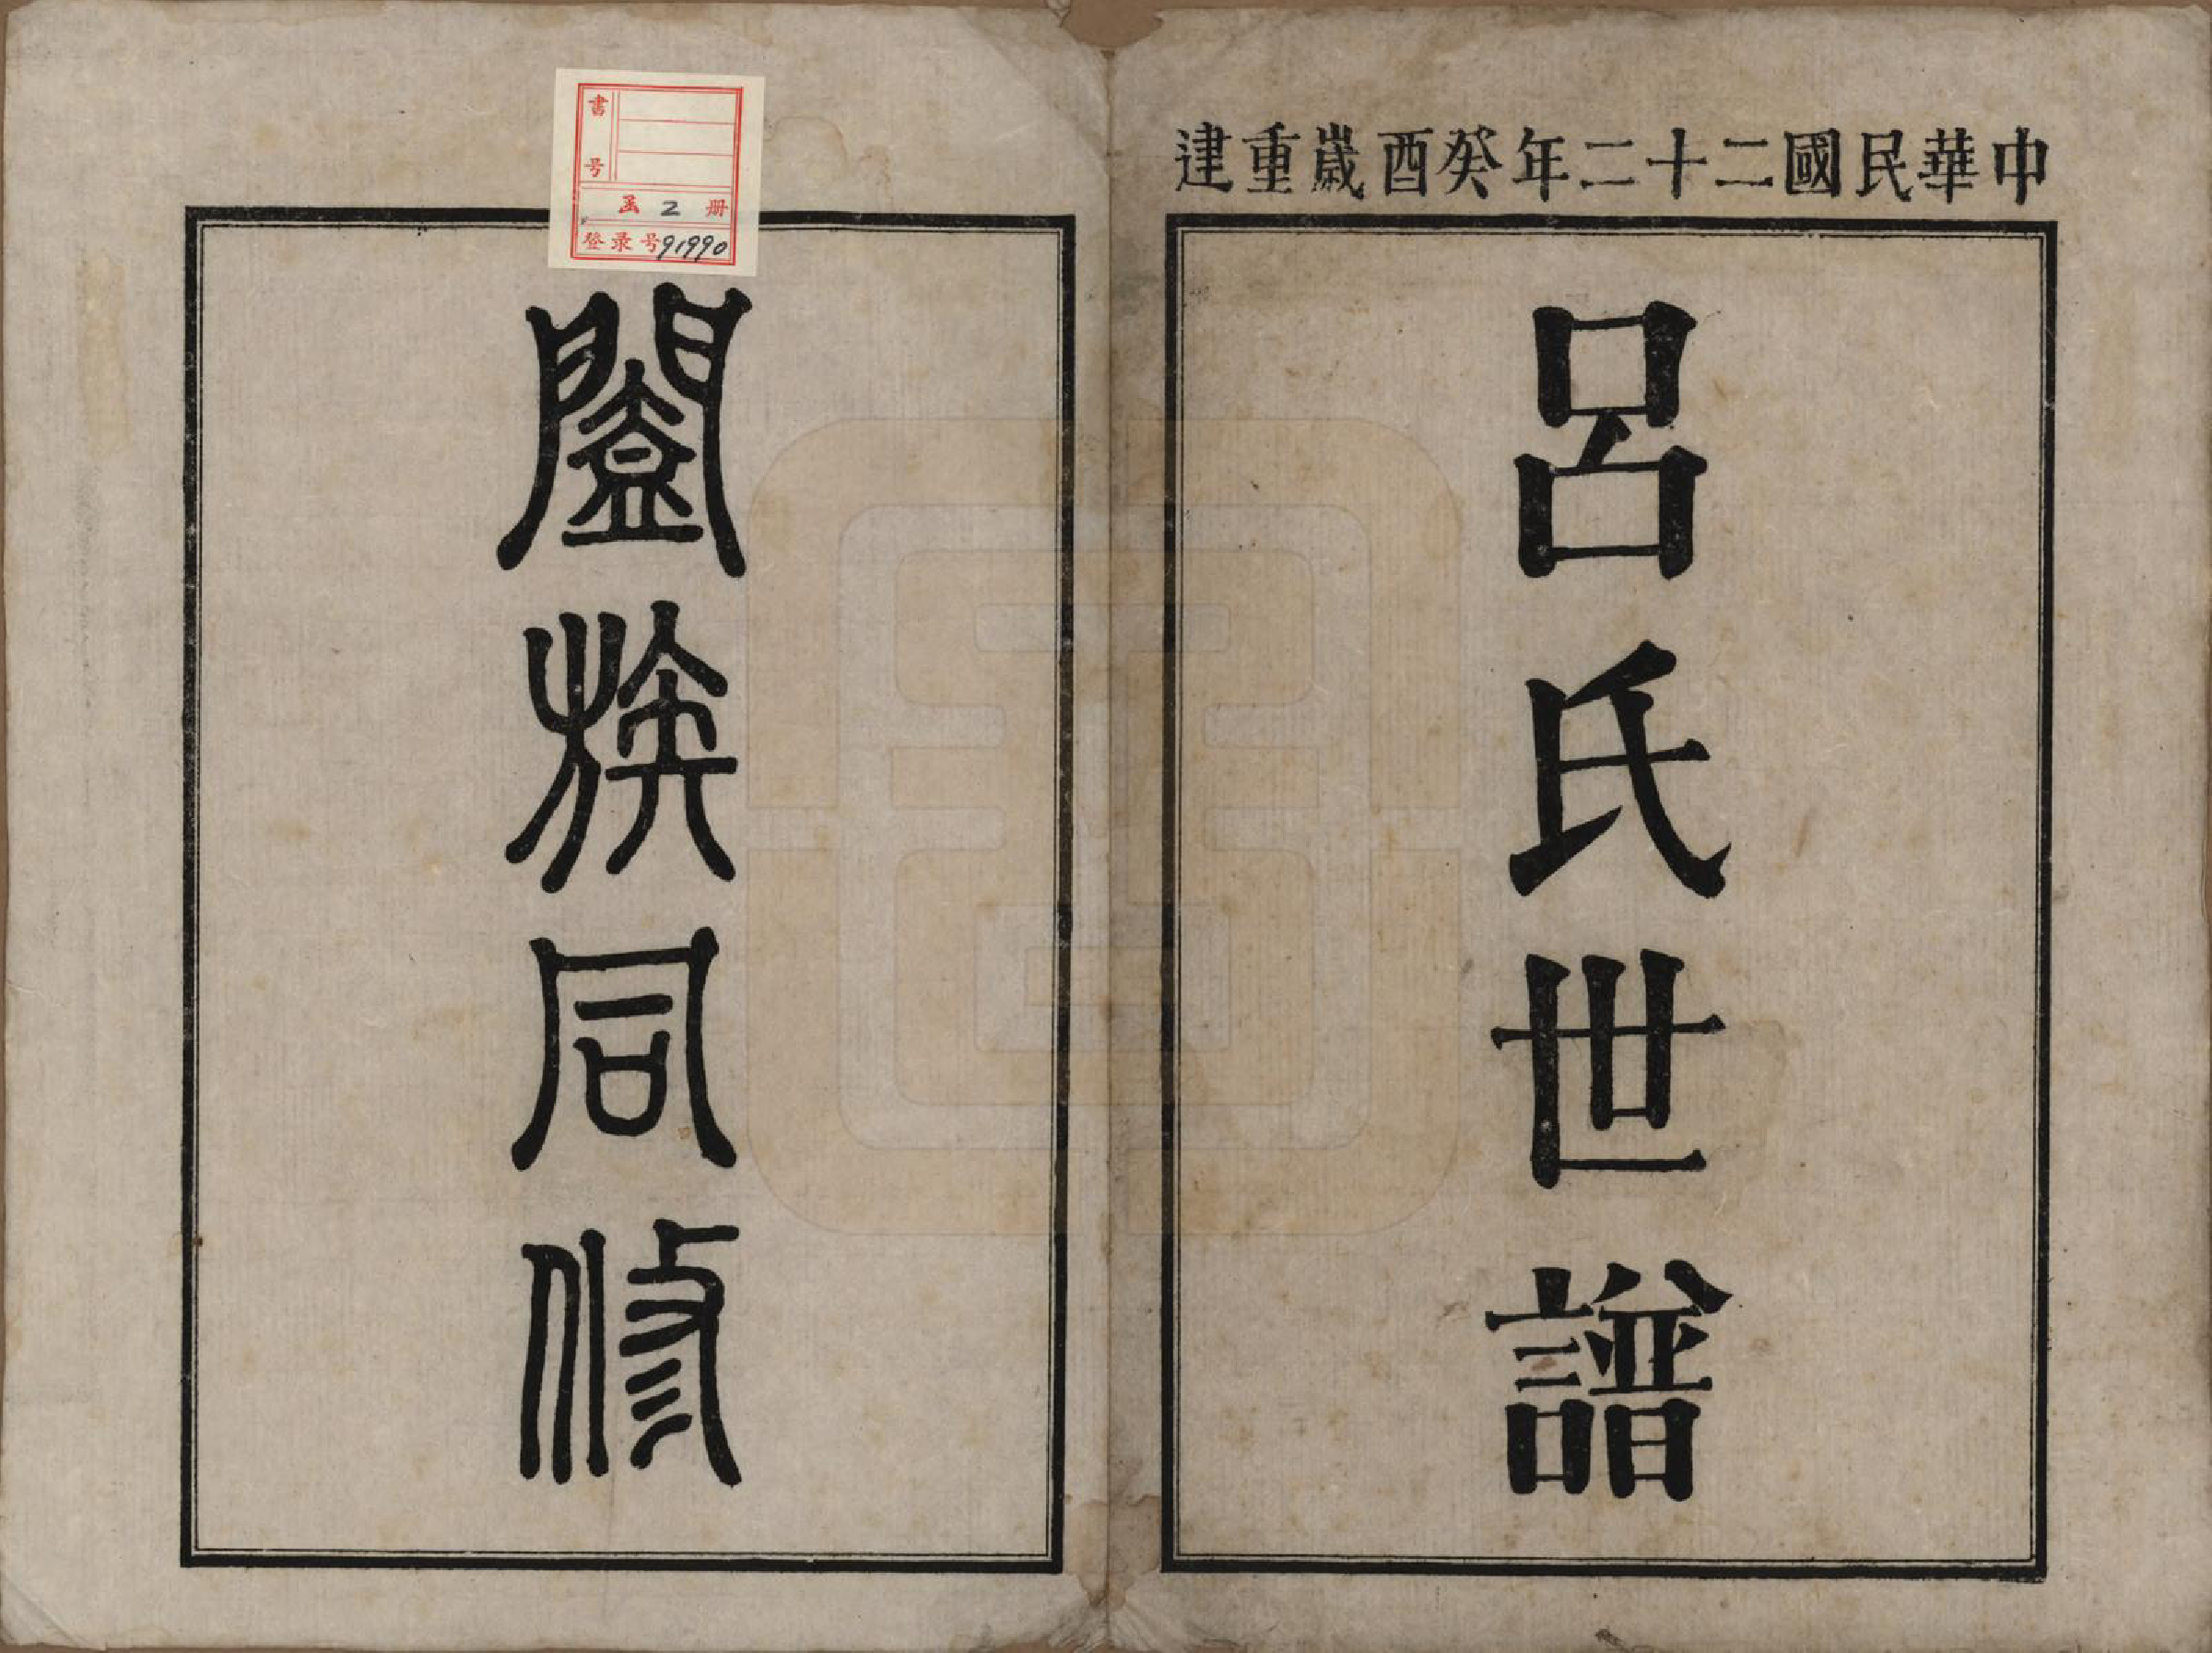 中華民國二十二年癸酉歲重建
呂氏世譜
闔族同修
書号
函 2 册
登录号91990